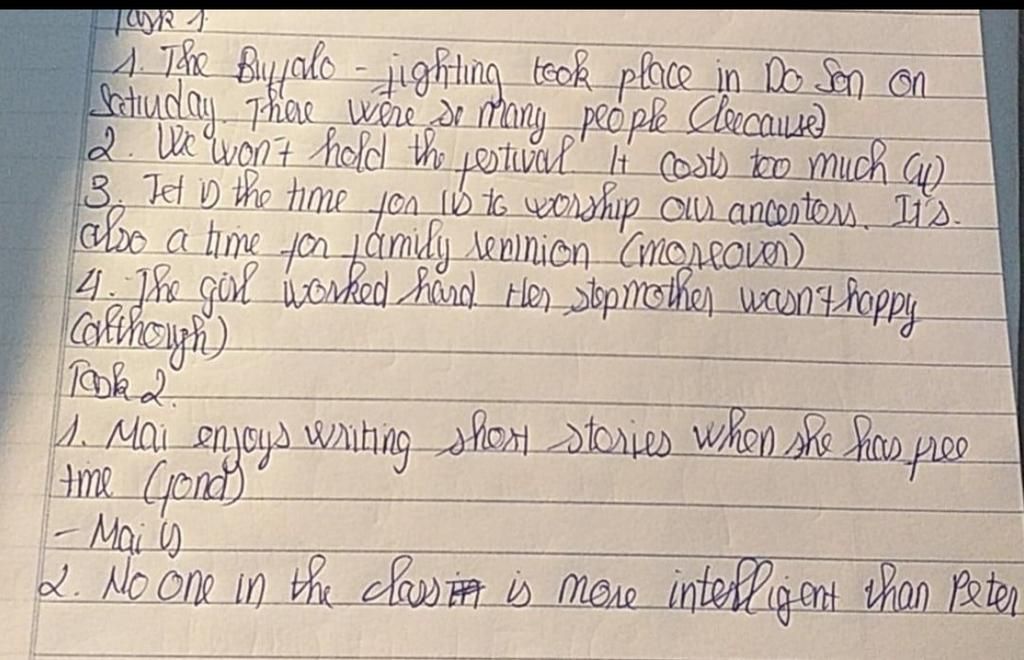 Task 1.
1. The Buffalo - fighting took place in Do Son on
Satuday. There were so many people (because)
2. We won't hold the festival It costs too much (if)
3. Tet is the time for us to worship our ancestors. It's.
also a time for family reunion (moreover)
4. The girl worked hard. Her stepmother wasn't happy
(although)
Task 2.
1. Mai enjoys writing short stories when she has free
tme (fond)
- Mai is
2. No one in the class is more intelligent than Peter